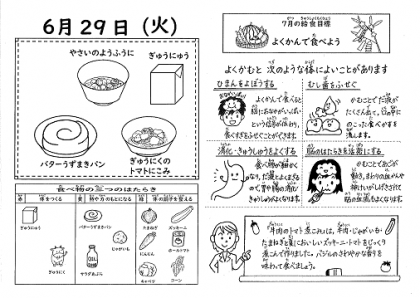 6月29日（火）
やさいのようふうに
ぎゅうにゅう
バターうずまきパン
ぎゅうにくの
トマトにこみ
食べ物の三つのはたらき
赤 体をつくる
黄 熱や力のもとになる
緑 体の調子を整える
ぎゅうにゅう
ぎゅうにく
バターうずまきパン
じゃがいも
サラダあぶら
たまねぎ
ズッキーニ
にんじん
ホールトマト
キャベツ
コーン
7月の給食目標
よくかんで食べよう
よくかむと 次のような体によいことがあります
ひまんをよぼうする
よくかんで食べると
むし歯をふせぐ
かむことでだ液が
たくさん出て、口の中に
のこった食べかすを
流します。
消化・きゅうしゅうをよくする
食べ物が細かく
なり、だ液とよくまざる
ので胃や腸の消化
きゅうしゅうがよくなります。
脳のはたらきを活発にする
かむことであごが
動き、
「牛肉のトマト煮こみ」は、牛肉・じゃがいも・
たまねぎと夏においしいズッキーニ・トマトをじっくり
煮こんで作りました。バジルのさわやかな香りを
味わって食べましょう。